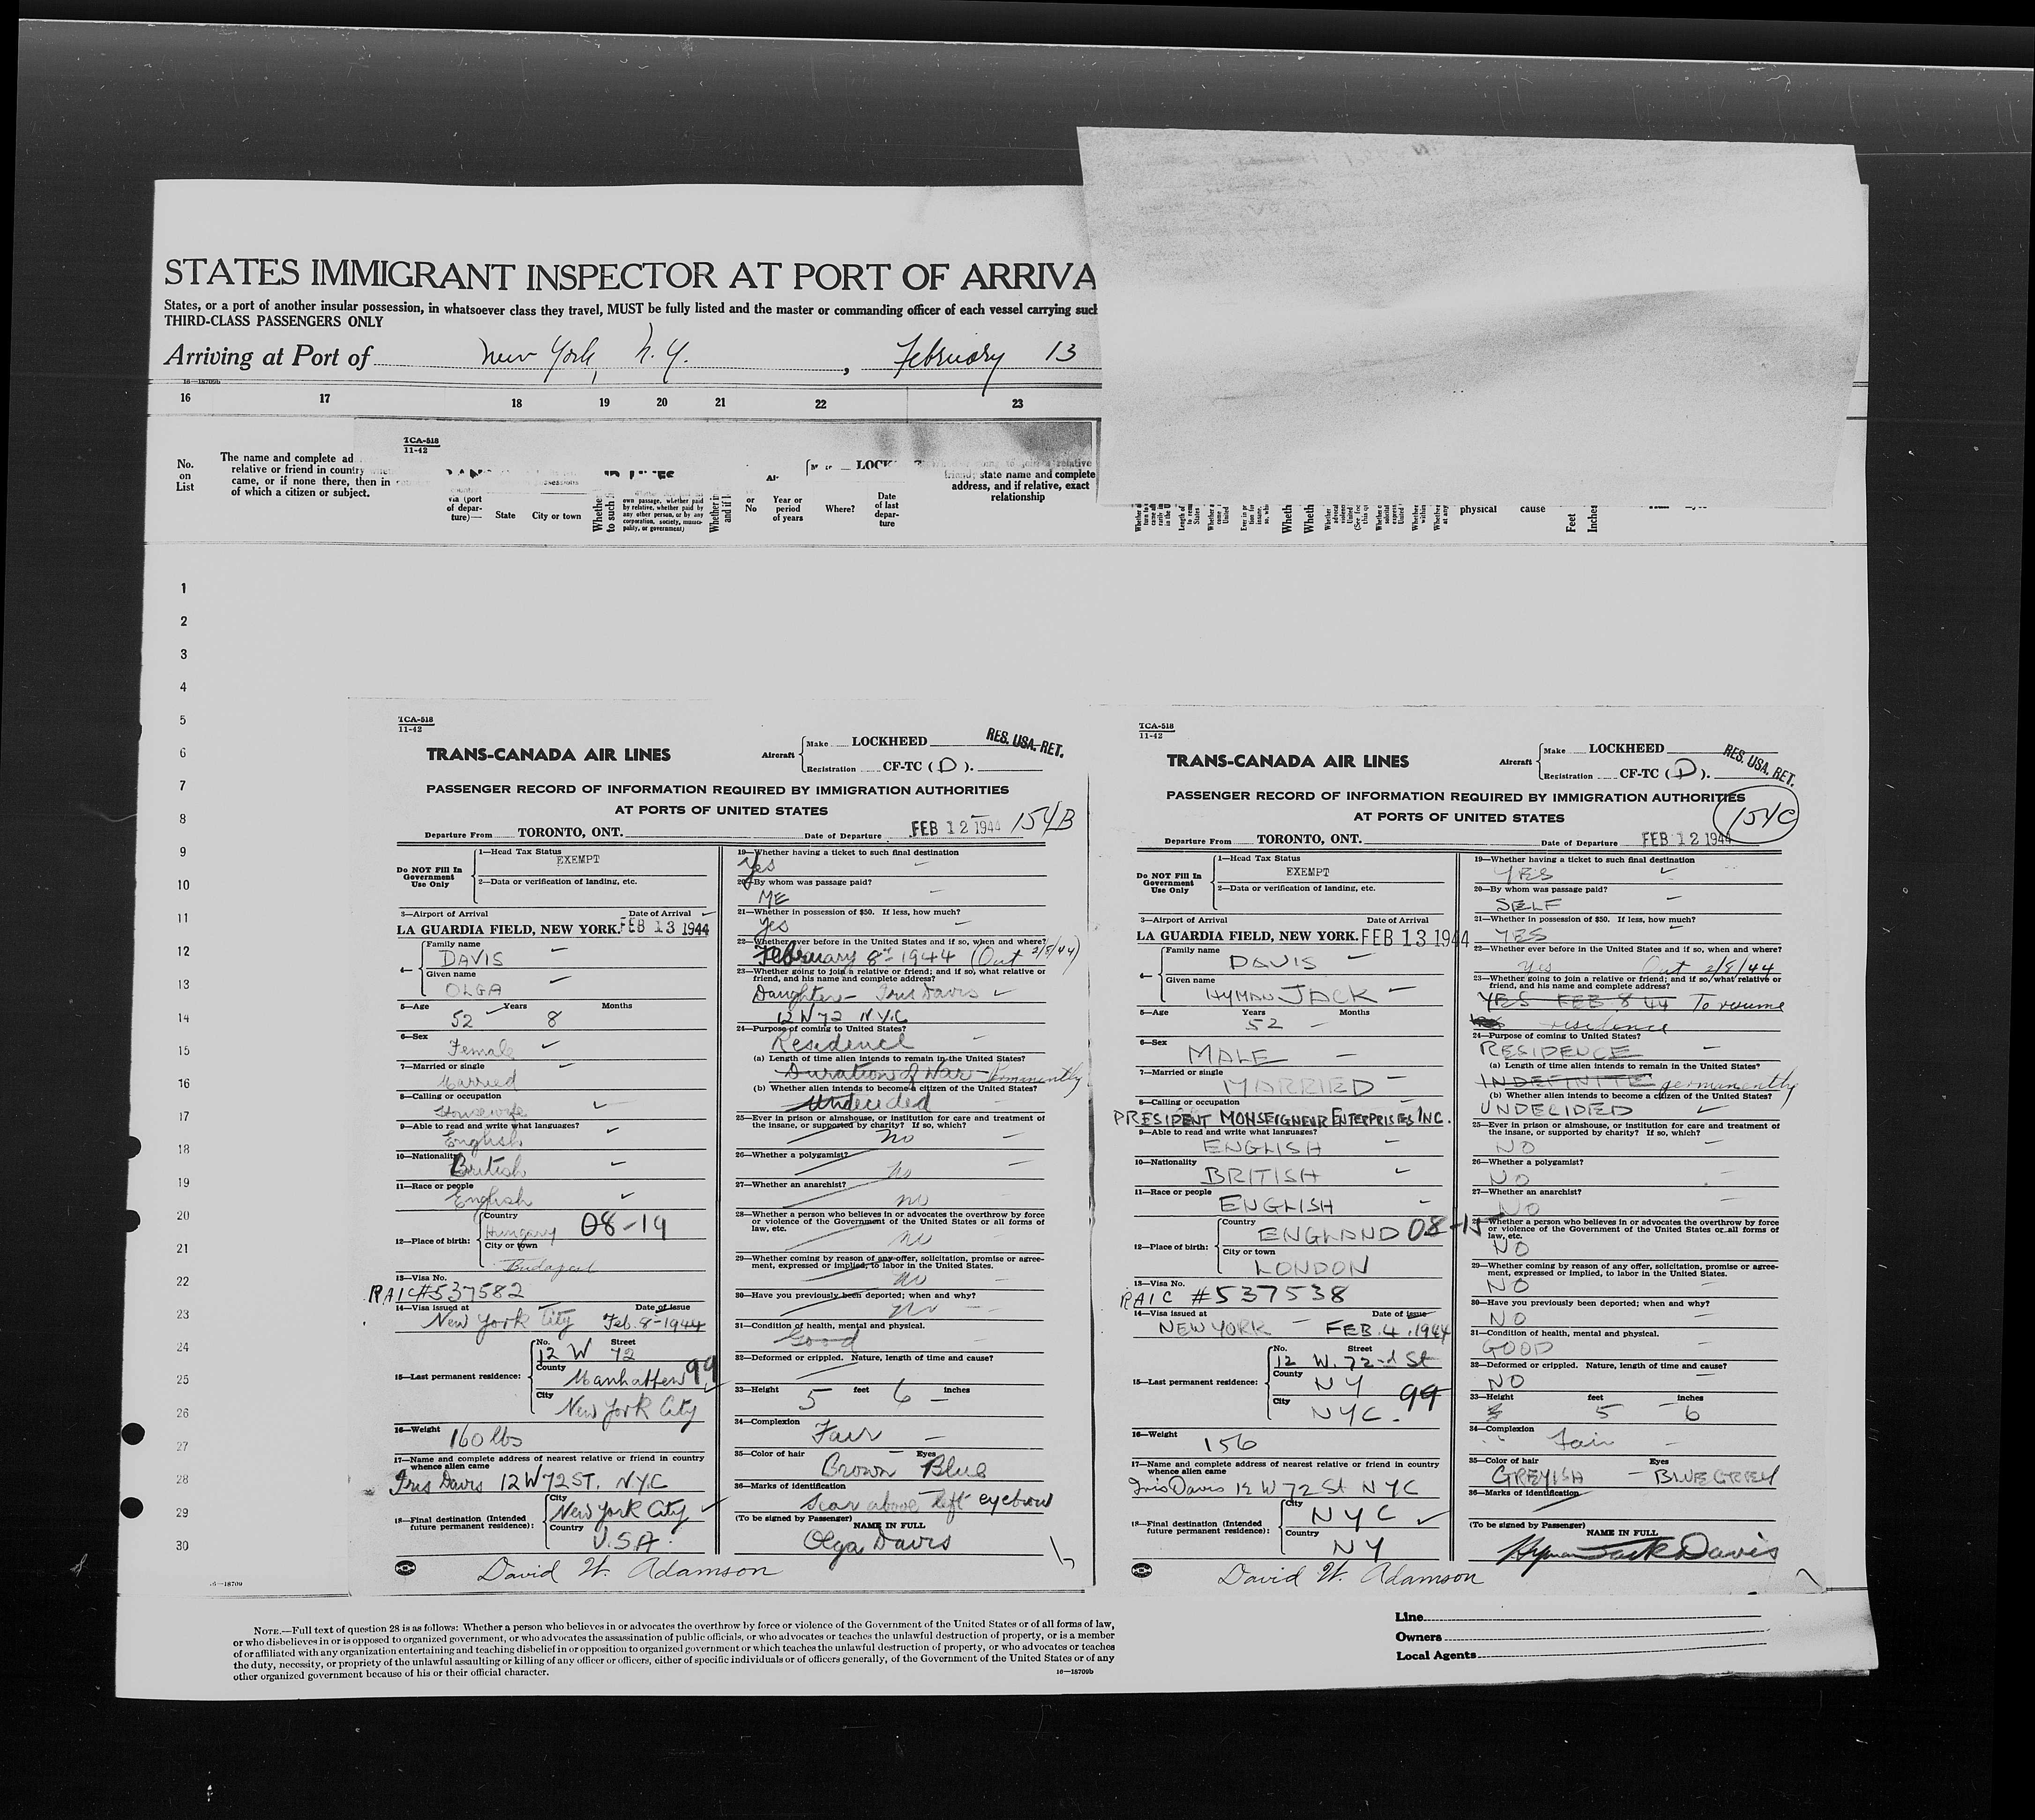 STATES IMMIGRANT INSPECTOR AT PORT OF ARRIVA
States, or a port of another insular possession, in whatsoever class they travel, MUST be fully listed and the master or commanding officer of each vessel carrying such
THIRD-CLASS PASSENGERS ONLY
Arriving at Port of New York, N.Y. , February 13
16—18709b
16 17 18 19 20 21 22 23
TCA-518
11-42
No. on List
The name and complete ad
relative or friend in country
came, or if none there, then in
of which a citizen or subject.
via (port of depar-ture)—
State
City or town
Whethe
to such
own passage, whether paid
by relative, whether paid by
any other person, or by any
corporation, society, munici-
pality, or government)
Whether i
and if l
or
No
Year or period of years
Where?
Date of last depar-ture
LOCK
friend; state name and complete
address, and if relative, exact
relationship
Wheth
Wheth
physical cause
Feet
Inches
1
2
3
4
5
6
7
8
9
10
11
12
13
14
15
16
17
18
19
20
21
22
23
24
25
26
27
28
29
30
16—18709
TCA-518
11-42
TRANS-CANADA AIR LINES
Aircraft
Make LOCKHEED
Registration CF-TC ( D ).
RES. USA. RET.
PASSENGER RECORD OF INFORMATION REQUIRED BY IMMIGRATION AUTHORITIES
AT PORTS OF UNITED STATES
154B
Departure From TORONTO, ONT. Date of Departure FEB 12 1944
Do NOT Fill In
Government
Use Only
1—Head Tax Status
EXEMPT
2—Data or verification of landing, etc.
3—Airport of Arrival Date of Arrival
LA GUARDIA FIELD, NEW YORK. FEB 13 1944
4—
Family name
DAVIS
Given name
OLGA
5—Age Years Months
52 8
6—Sex
Female
7—Married or single
Married
8—Calling or occupation
Housewife
9—Able to read and write what languages?
English
10—Nationality
British
11—Race or people
English
12—Place of birth:
Country
Hungary 08-19
City or town
Budapest
13—Visa No.
RAIC #537582
14—Visa issued at Date of issue
New York City Feb. 8-1944
15—Last permanent residence:
No. Street
12 W 72
County
Manhatten 99
City
New York City
16—Weight
160 lbs
17—Name and complete address of nearest relative or friend in country
whence alien came
Iris Davis 12 W 72 ST. N.Y.C
18—Final destination (Intended
future permanent residence):
City
New York City
Country
U.S.A.
David W. Adamson
19—Whether having a ticket to such final destination
Yes
20—By whom was passage paid?
ME
21—Whether in possession of $50. If less, how much?
Yes
22—Whether ever before in the United States and if so, when and where?
February 8th 1944 (Out 2/8/44)
23—Whether going to join a relative or friend; and if so, what relative or
friend, and his name and complete address?
Daughter - Iris Davis
12 W 72 N.Y.C
24—Purpose of coming to United States?
Residence
(a) Length of time alien intends to remain in the United States?
Duration of War - Permanently
(b) Whether alien intends to become a citizen of the United States?
Undecided
25—Ever in prison or almshouse, or institution for care and treatment of
the insane, or supported by charity? If so, which?
No
26—Whether a polygamist?
No
27—Whether an anarchist?
no
28—Whether a person who believes in or advocates the overthrow by force
or violence of the Government of the United States or all forms of
law, etc.
no
29—Whether coming by reason of any offer, solicitation, promise or agree-
ment, expressed or implied, to labor in the United States.
no
30—Have you previously been deported; when and why?
no
31—Condition of health, mental and physical.
Good
32—Deformed or crippled. Nature, length of time and cause?
33—Height 5 feet 6 inches
34—Complexion
Fair
35—Color of hair Eyes
Brown Blue
36—Marks of identification
Scar above left eyebrow
(To be signed by Passenger)
NAME IN FULL
Olga Davis
TCA-518
11-42
TRANS-CANADA AIR LINES
Aircraft
Make LOCKHEED
Registration CF-TC ( D ).
RES. USA. RET.
PASSENGER RECORD OF INFORMATION REQUIRED BY IMMIGRATION AUTHORITIES
AT PORTS OF UNITED STATES
154C
Departure From TORONTO, ONT. Date of Departure FEB 12 1944
Do NOT Fill In
Government
Use Only
1—Head Tax Status
EXEMPT
2—Data or verification of landing, etc.
3—Airport of Arrival Date of Arrival
LA GUARDIA FIELD, NEW YORK. FEB 13 1944
4—
Family name
DAVIS
Given name
HYMAN JACK
5—Age Years Months
52
6—Sex
MALE
7—Married or single
MARRIED
8—Calling or occupation
PRESIDENT MONSEIGNEUR ENTERPRISES INC.
9—Able to read and write what languages?
ENGLISH
10—Nationality
BRITISH
11—Race or people
ENGLISH
12—Place of birth:
Country
ENGLAND 08-15
City or town
LONDON
13—Visa No.
RAIC #537538
14—Visa issued at Date of issue
NEW YORK FEB. 4. 1944
15—Last permanent residence:
No. Street
12 W. 72nd St
County
NY
City
NYC. 99
16—Weight
156
17—Name and complete address of nearest relative or friend in country
whence alien came
Iris Davis 12 W 72 St NYC
18—Final destination (Intended
future permanent residence):
City
NYC
Country
NY
David W. Adamson
19—Whether having a ticket to such final destination
YES
20—By whom was passage paid?
SELF
21—Whether in possession of $50. If less, how much?
YES
22—Whether ever before in the United States and if so, when and where?
Yes Out 2/8/44
23—Whether going to join a relative or friend; and if so, what relative or
friend, and his name and complete address?
YES FEB 8 44 To resume
residence
24—Purpose of coming to United States?
RESIDENCE
(a) Length of time alien intends to remain in the United States?
INDEFINITE permanently
(b) Whether alien intends to become a citizen of the United States?
UNDECIDED
25—Ever in prison or almshouse, or institution for care and treatment of
the insane, or supported by charity? If so, which?
NO
26—Whether a polygamist?
NO
27—Whether an anarchist?
NO
28—Whether a person who believes in or advocates the overthrow by force
or violence of the Government of the United States or all forms of
law, etc.
NO
29—Whether coming by reason of any offer, solicitation, promise or agree-
ment, expressed or implied, to labor in the United States.
NO
30—Have you previously been deported; when and why?
NO
31—Condition of health, mental and physical.
GOOD
32—Deformed or crippled. Nature, length of time and cause?
NO
33—Height feet inches
5 6
34—Complexion
Fair
35—Color of hair Eyes
GREYISH - BLUE GREY
36—Marks of identification
(To be signed by Passenger)
NAME IN FULL
Hyman Jack Davis
NOTE.—Full text of question 28 is as follows: Whether a person who believes in or advocates the overthrow by force or violence of the Government of the United States or of all forms of law,
or who disbelieves in or is opposed to organized government, or who advocates the assassination of public officials, or who advocates or teaches the unlawful destruction of property, or is a member
of or affiliated with any organization entertaining and teaching disbelief in or opposition to organized government or which teaches the unlawful destruction of property, or who advocates or teaches
the duty, necessity, or propriety of the unlawful assaulting or killing of any officer or officers, either of specific individuals or of officers generally, of the Government of the United States or of any
other organized government because of his or their official character.
16—18709b
Line
Owners
Local Agents